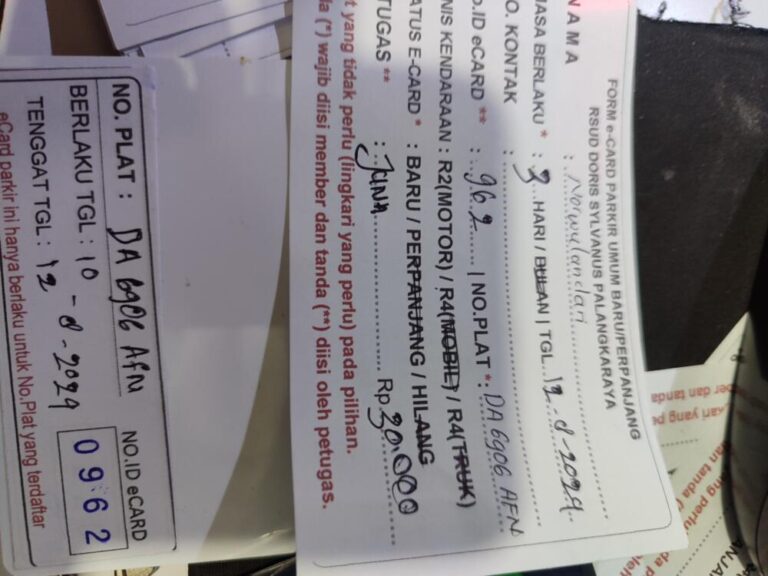 FORM e-CARD PARKIR UMUM BARU/PERPANJANG
RSUD DORIS SYLVANUS PALANGKARAYA
NAMA : Norwulandari
MASA BERLAKU * : 3 HARI / BULAN | TGL. 12-8-2024
NO. KONTAK :
NO.ID eCARD ** : 962 | NO.PLAT *: DA 6906 AFN
JENIS KENDARAAN : R2(MOTOR) / R4(MOBIL) / R4(TRUK)
STATUS E-CARD * : BARU / PERPANJANG / HILANG
TUGAS ** : Juna Rp 30.000
t yang tidak perlu (lingkari yang perlu) pada pilihan.
da (*) wajib diisi member dan tanda (**) diisi oleh petugas.
NO. PLAT : DA 6906 AFN
NO.ID eCARD
BERLAKU TGL : 10-8-2024
0962
TENGGAT TGL : 12
eCard parkir ini hanya berlaku untuk No.Plat yang terdaftar